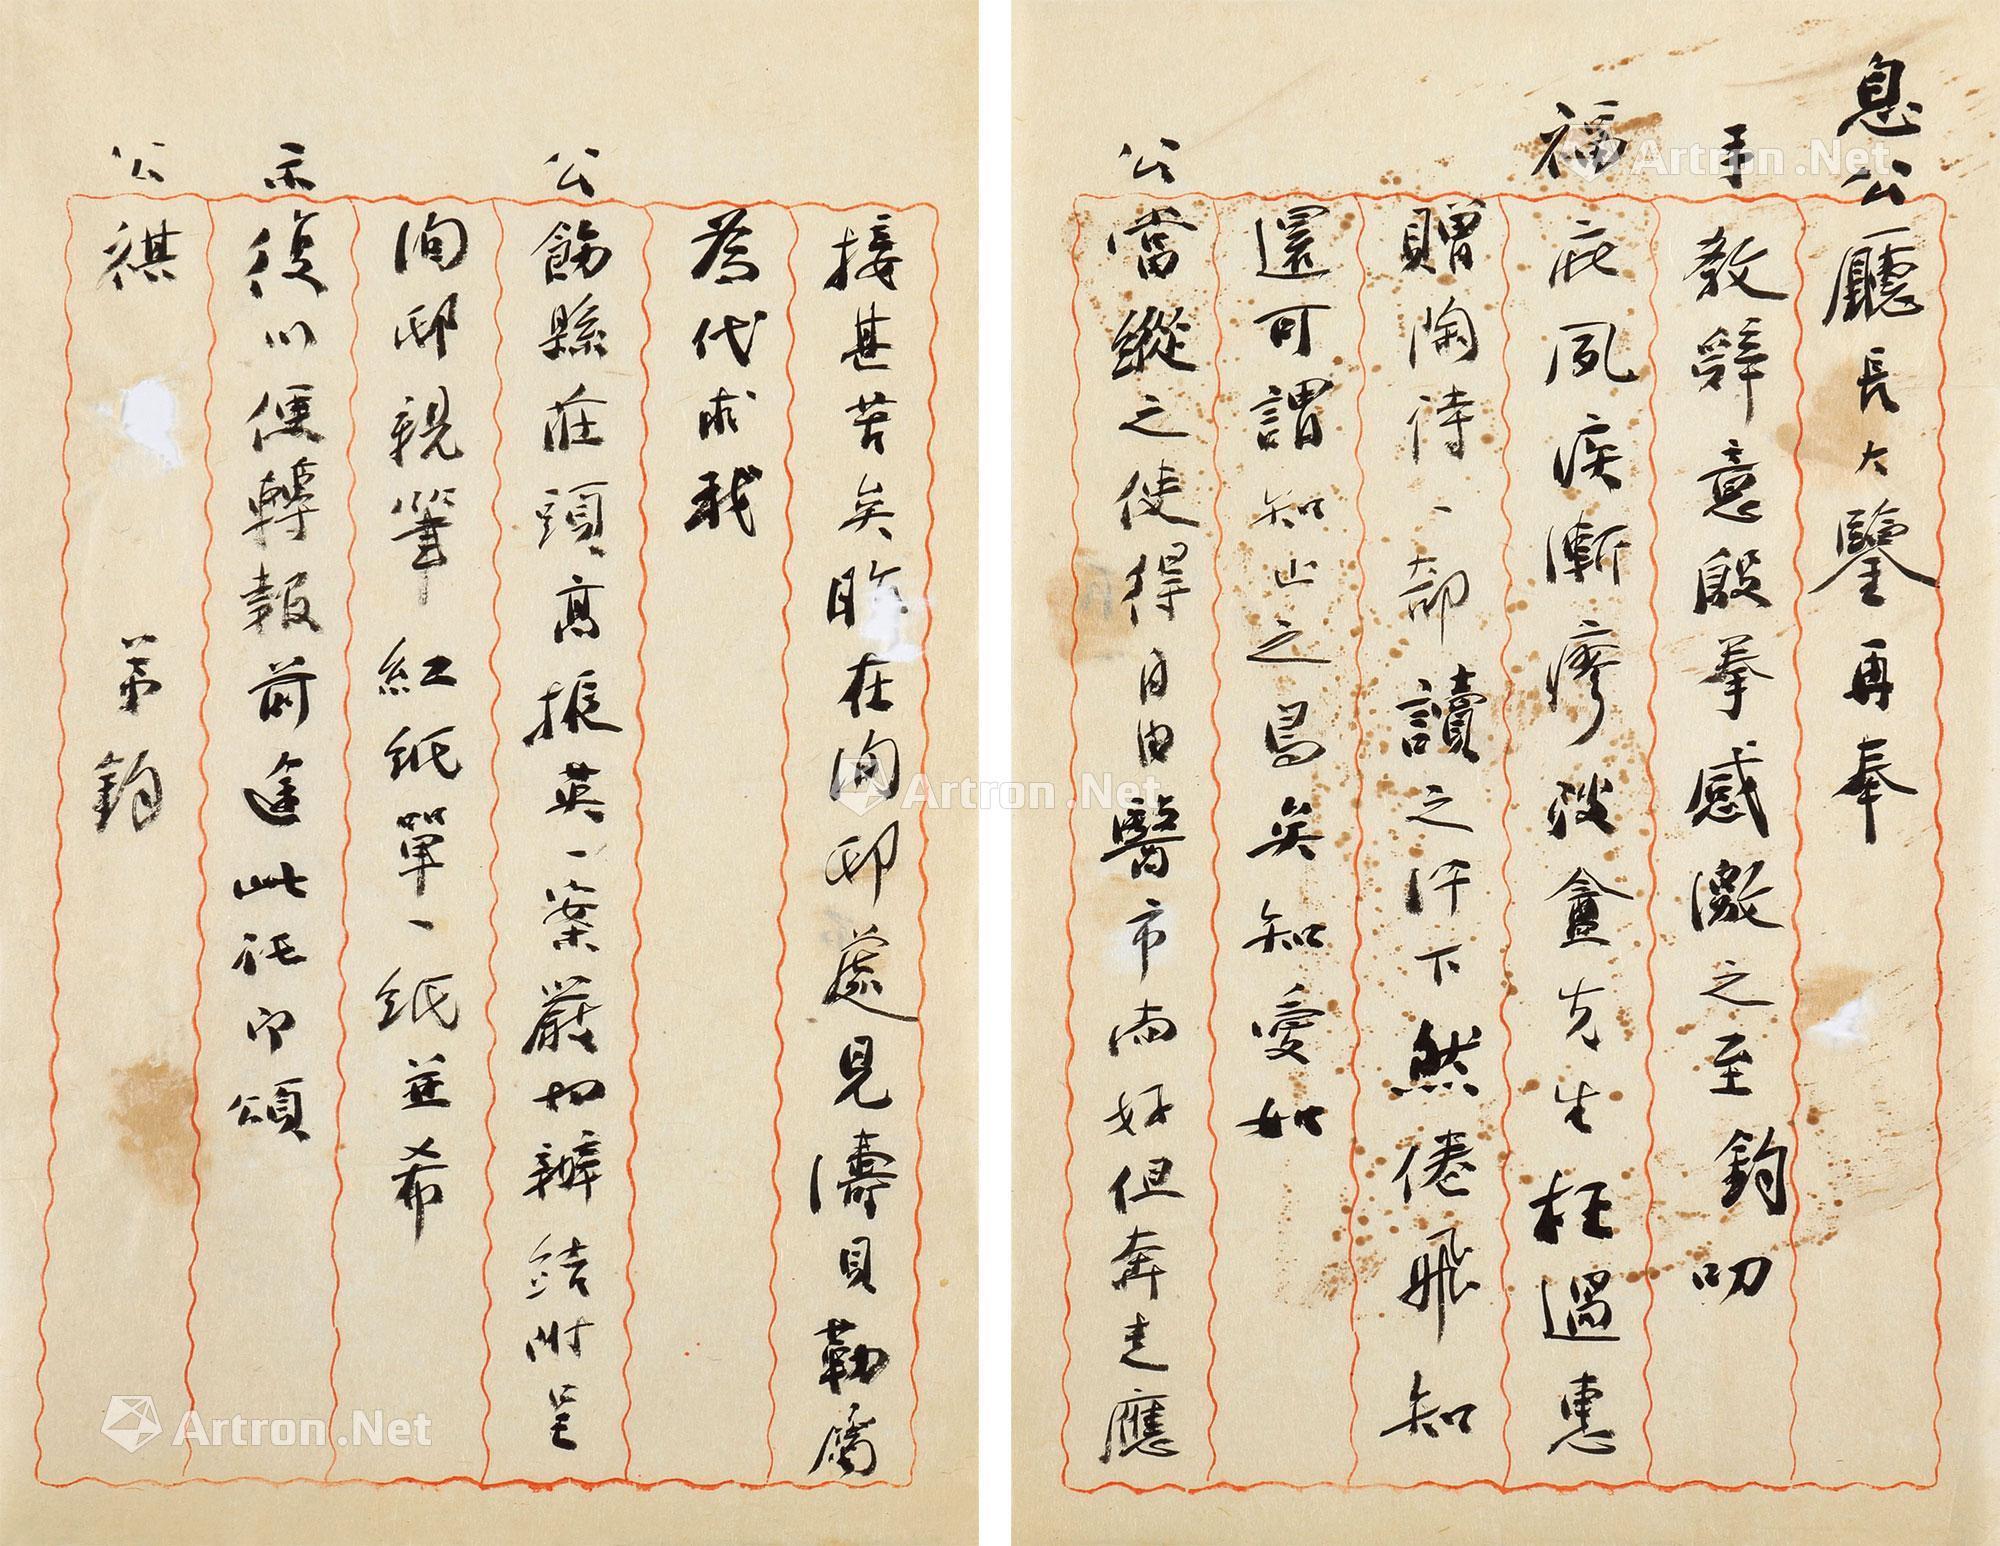 息公廳長大鑒再奉
手教辭意殷拳感激之至鈞叨
福庇夙疾漸瘳淡盦先生枉過惠
贈陶詩一部讀之汗下然倦飛知
還可謂知止之鳥矣知愛如
公當縱之使得自由醫市尚好但奔走應
接甚苦矣昨在洵邸處見濤貝勒屬
為代求我
公飭縣莊頭高振英一案嚴切辦結附呈
洵邸親筆紅紙單一紙並希
示復以便轉報前途此託即頌
公祺 弟鈞
Artron.Net
Artron.Net
Artron.Net
Artron.Net
Artron.Net